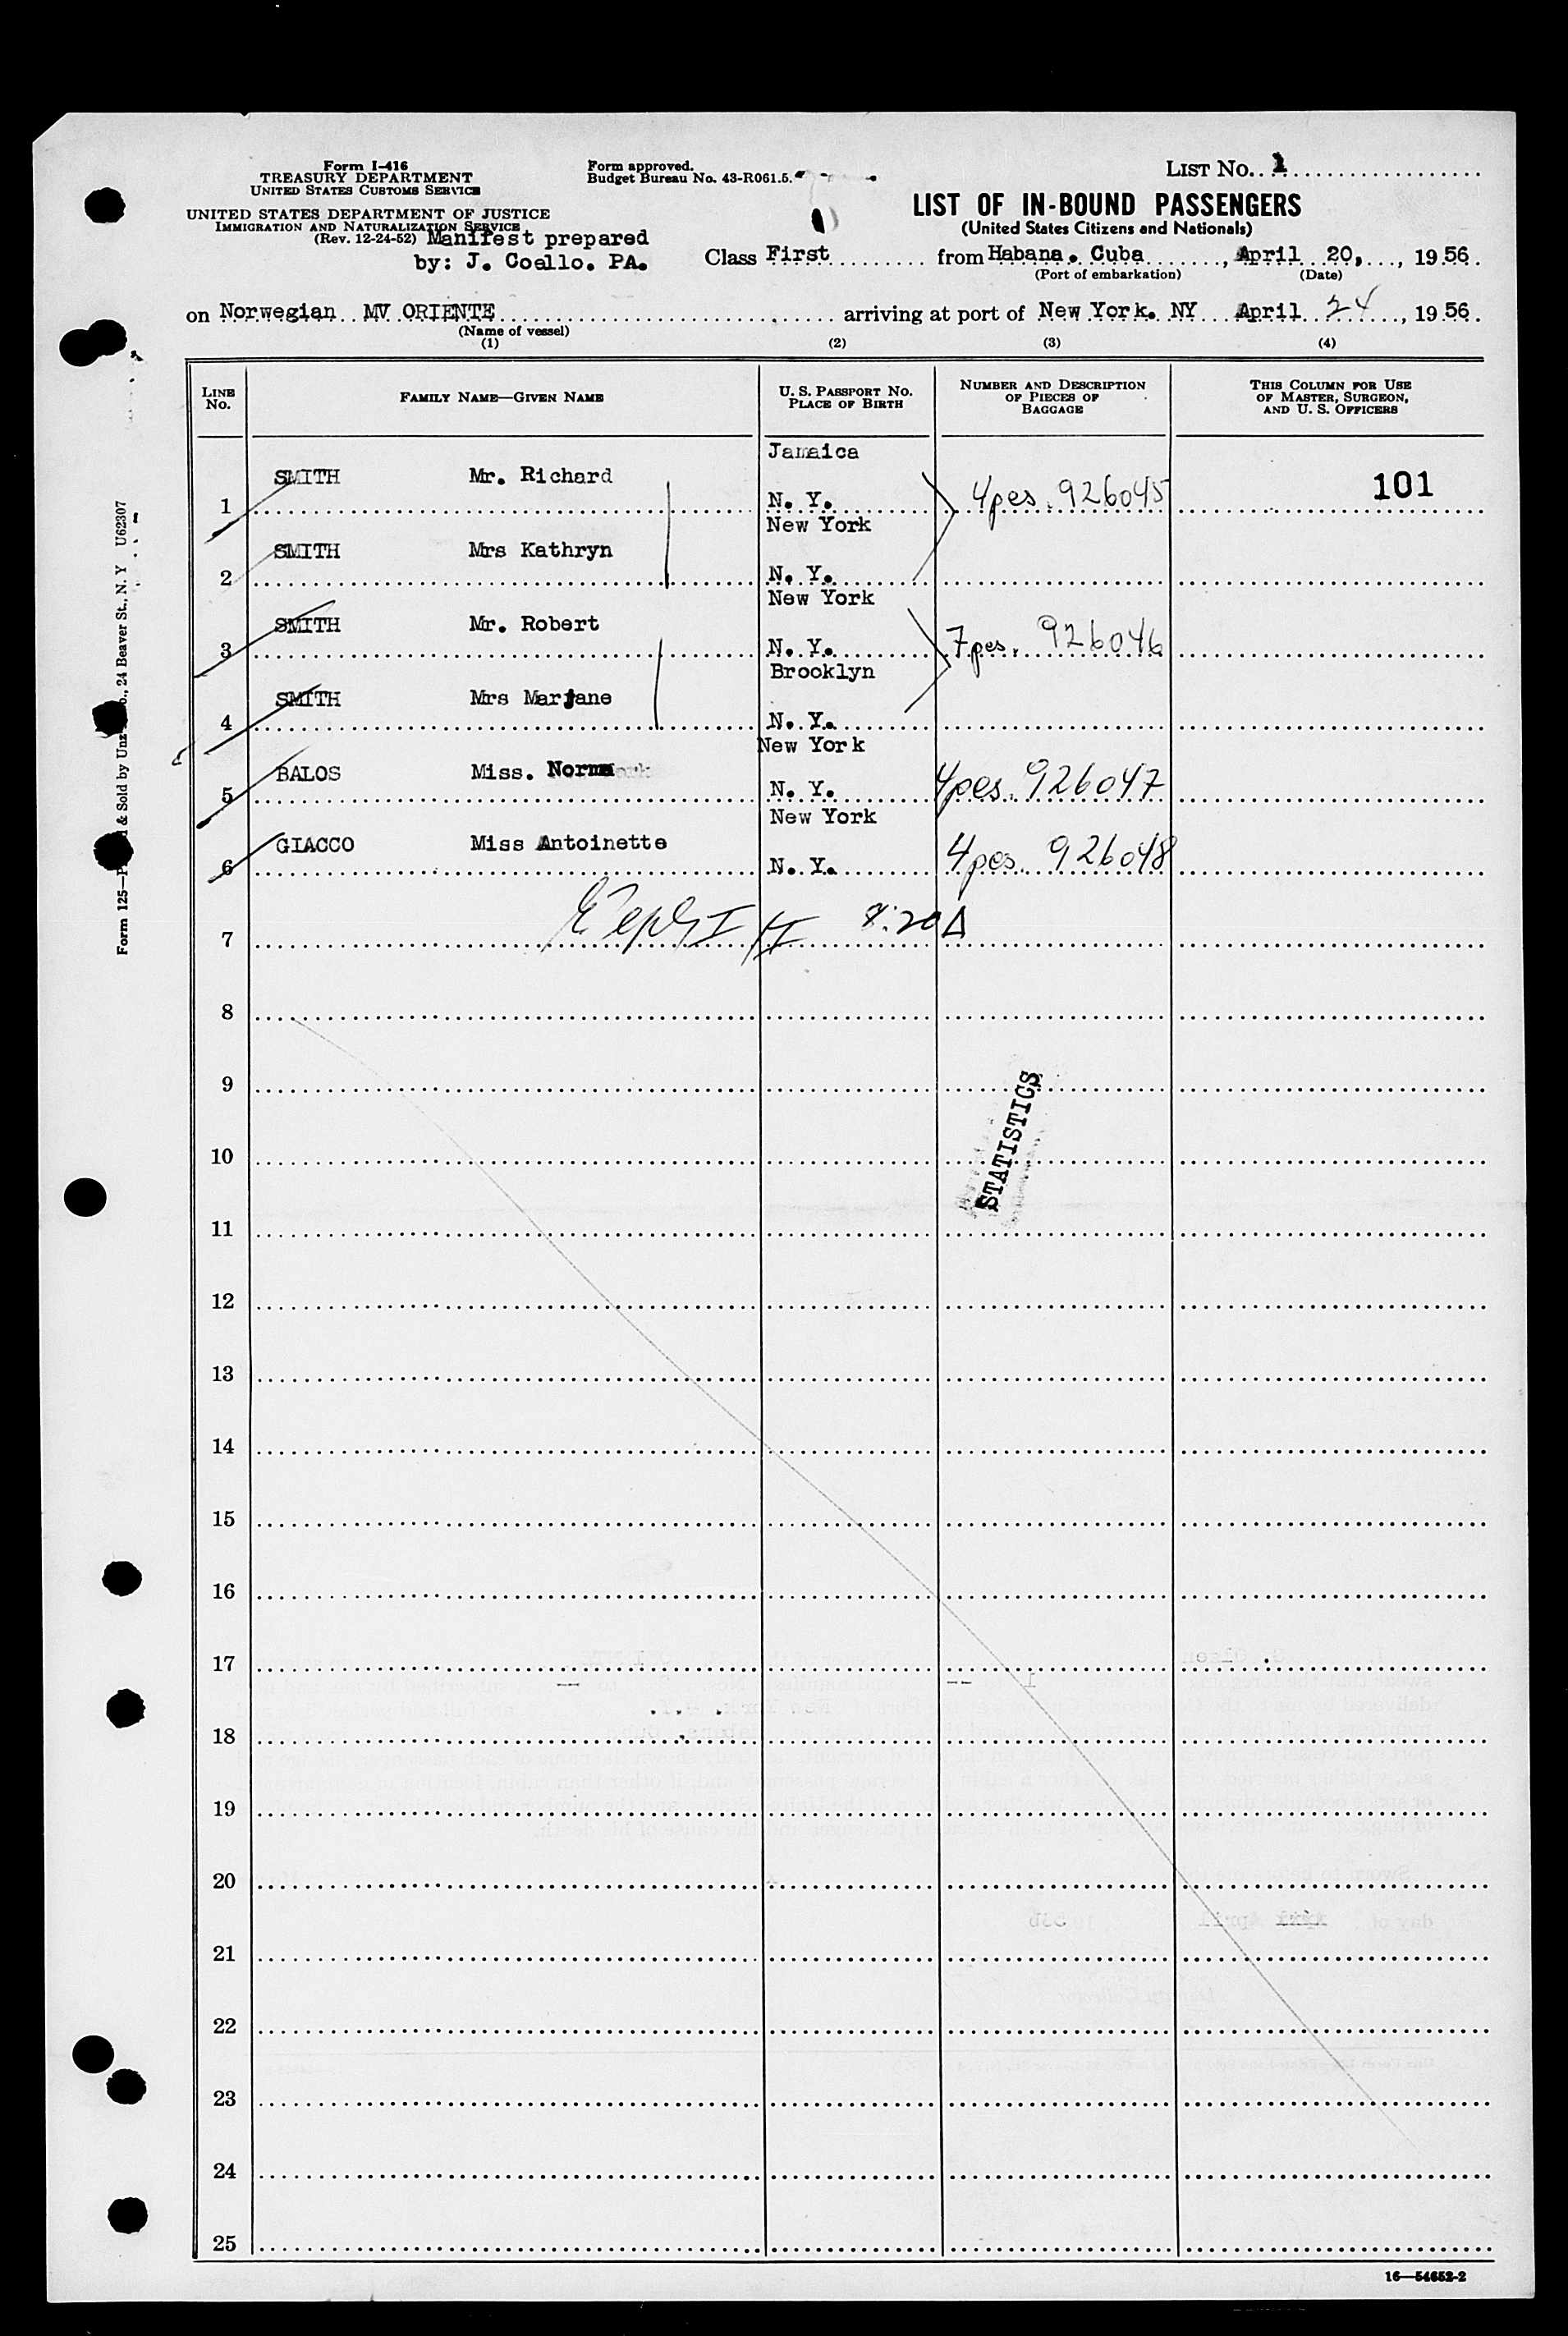 Form I-416
TREASURY DEPARTMENT
UNITED STATES CUSTOMS SERVICE
UNITED STATES DEPARTMENT OF JUSTICE
IMMIGRATION AND NATURALIZATION SERVICE
(Rev. 12-24-52) Manifest prepared
by: J. Coello. PA.
Form approved.
Budget Bureau No. 43-R061.5.
LIST No. 1
LIST OF IN-BOUND PASSENGERS
(United States Citizens and Nationals)
Class First from Habana. Cuba, April 20, 1956.
(Port of embarkation) (Date)
on Norwegian MV ORIENTE arriving at port of New York. NY April 24, 1956.
(Name of vessel)
(1) (2) (3) (4)
LINE No. FAMILY NAME—GIVEN NAME U. S. PASSPORT NO. PLACE OF BIRTH NUMBER AND DESCRIPTION OF PIECES OF BAGGAGE THIS COLUMN FOR USE OF MASTER, SURGEON, AND U. S. OFFICERS
Jamaica
1 SMITH Mr. Richard N. Y. 4pcs. 926045 101
New York
2 SMITH Mrs Kathryn N. Y.
New York
3 SMITH Mr. Robert N. Y. 7pcs. 926046
Brooklyn
4 SMITH Mrs Marjane N. Y.
New York
5 BALOS Miss. Norma N. Y. 4pcs. 926047
New York
6 GIACCO Miss Antoinette N. Y. 4pcs. 926048
7 8:20A
8
9
STATISTICS
10
11
12
13
14
15
16
17
18
19
20
21
22
23
24
25
16—54652-2
Form 125—P & Sold by Unz Co., 24 Beaver St., N. Y U62307